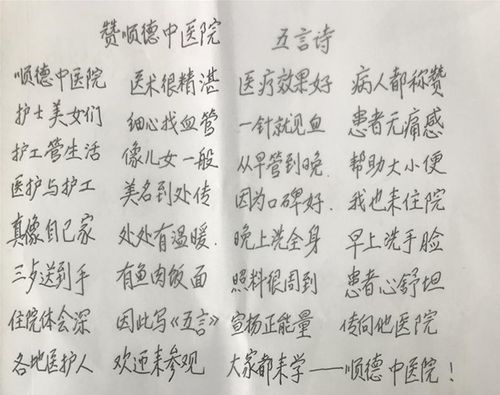 赞顺德中医院 五言诗
顺德中医院 医术很精湛 医疗效果好 病人都称赞
护士美女们 细心找血管 一针就见血 患者无痛感
护工管生活 像儿女一般 从早管到晚. 帮助大小便
医护与护工 美名到处传 因为口碑好. 我也来住院
真像自己家 处处有温暖. 晚上洗全身 早上洗手脸
三歺送到手 有鱼肉饭面 照料很周到 患者心舒坦
住院体会深 因此写《五言》 宣扬正能量 传向他医院
各地医护人 欢迎来参观 大家都来学——顺德中医院!